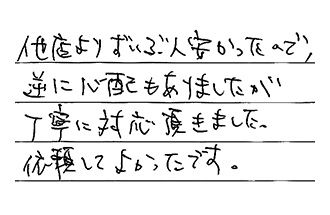 他店よりずいぶん安かったので、
逆に心配もありましたが
丁寧に対応頂きました。
依頼してよかったです。